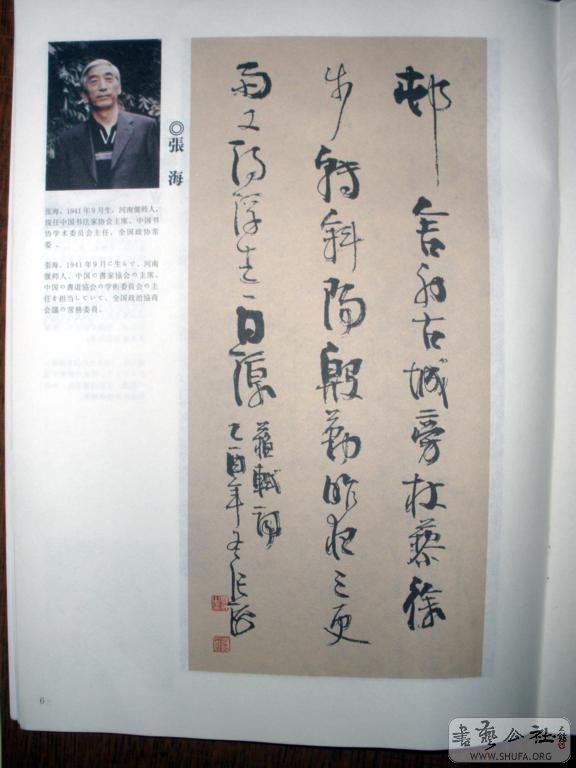 ◎張 海
张海，1941年9月生，河南偃师人，
现任中国书法家协会主席、中国书
协学术委员会主任，全国政协常
委。
張海、1941年9月に生んで、河南
偃師人、中国の書家協会の主席、
中国の書道協会の学術委員会の主
任を担当していて、全国政治協商
会議の常務委員。
邨舍外古城旁杖藜徐
步轉斜陽殷勤昨夜三更
雨又得浮生一日涼
蘇軾詞
乙酉年冬張海
6
書藝公社
WWW.SHUFA.ORG